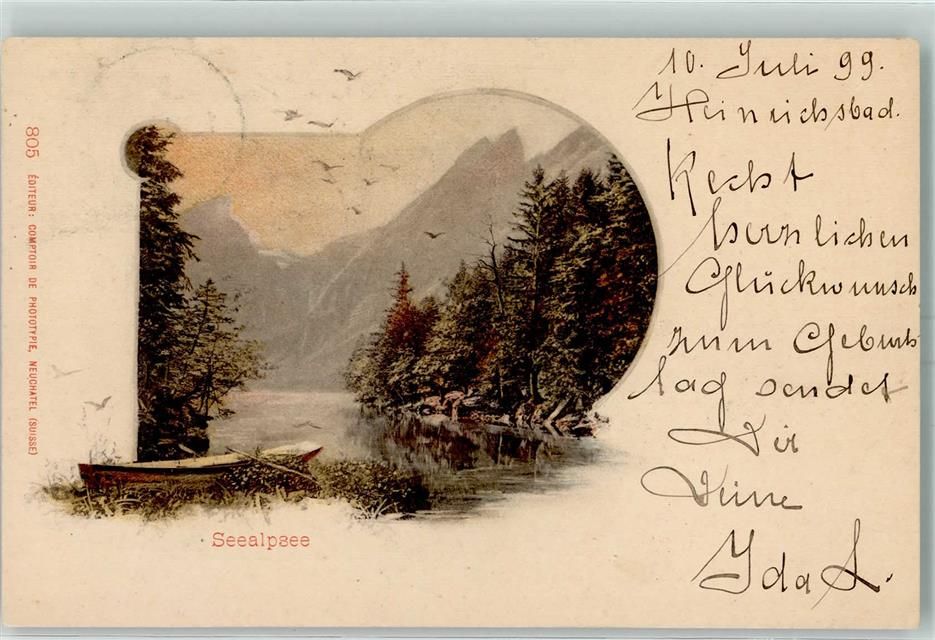 10. Juli 99.
Heinrichsbad.
Recht
herzlichen
Glückwunsch
zum Geburts-
tag sendet
Dir
Deine
Ida S.
Seealpsee
805 ÉDITEUR: COMPTOIR DE PHOTOTYPIE, NEUCHATEL (SUISSE)